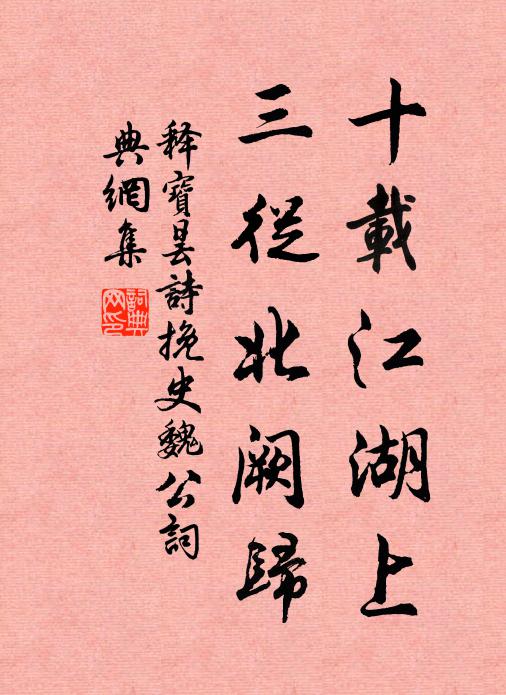 十載江湖上
三從北闕歸
释寶曇詩挽史魏公詞
典網集
詞典网印